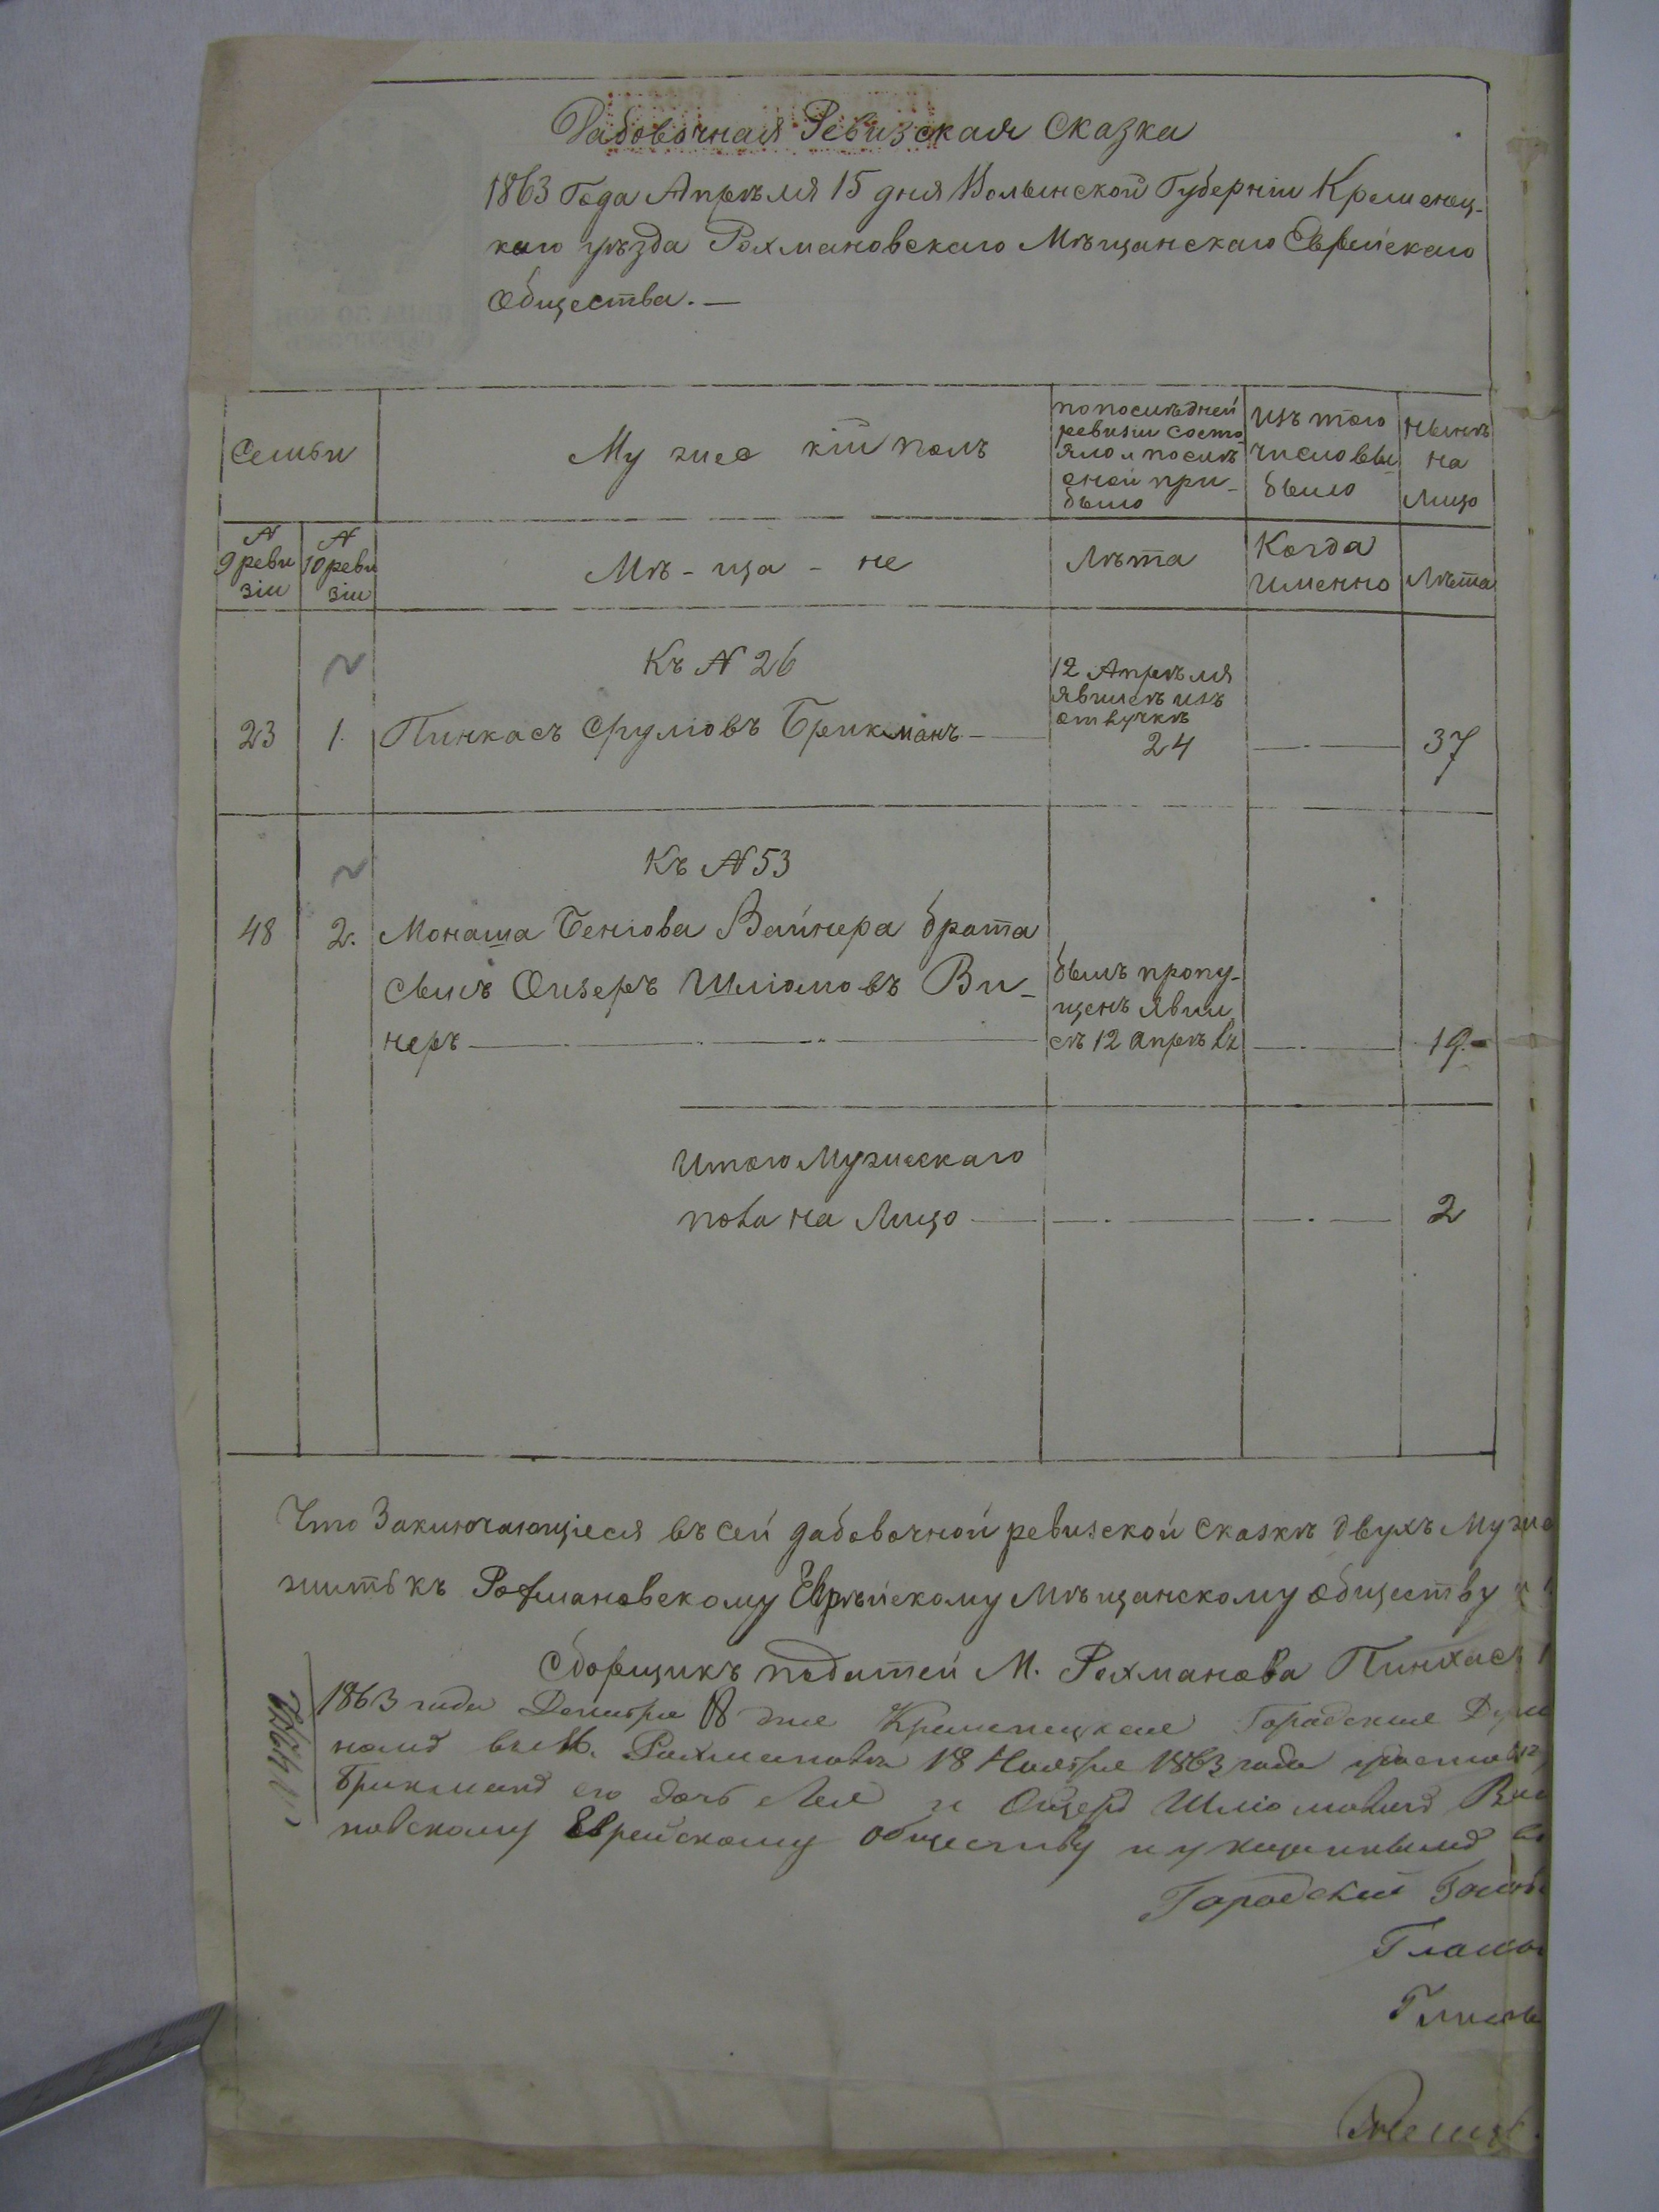 Дабовочная Ревизская Сказка
1863 Года Апрѣля 15 дня Волынской Губерніи Кременец-
каго уѣзда Рохмановскаго Мѣщанскаго Еврейскаго
Общества. —
Семьи
Мужескій полъ
по послѣдней
ревизіи состо
яло и послѣ
оной при-
было
Изъ того
числа вы
было
нынѣ
на
лицо
№
9 реви
зіи
№
10 реви
зіи
Мѣ - ща - не
Лѣта
Когда
Именно
Лѣта
Къ № 26
12 Апрѣля
явился изъ
отлучкѣ
23 1. Пинкасъ Сруліовъ Брикманъ — 24 — 37
Къ № 53
48 2. Монаша Беніова Вайнера брата
сынъ Оизеръ Шліомовъ Ви-
неръ —
былъ пропу-
щенъ явил
сѣ 12 апрѣля — 19.-
Итого Мужескаго
пола на Лицо — 2
Что Заключающіеся въ сей дабовочной ревизской сказкѣ двухъ Муже
жить къ Рохмановскому Еврѣйскому Мѣщанскому обществу и
Сборщикъ податей М. Рахманова Пинхасъ
1863 года Декабря 18 дня Кременецкая Городская Дума
въ М. Рахмановкѣ 18 Ноября 1863 года
Брикманъ его дочь Лея и Ойзеръ Шліомовичъ
новскому Еврейскому обществу и
Городской Голова
Гласны
Гласны